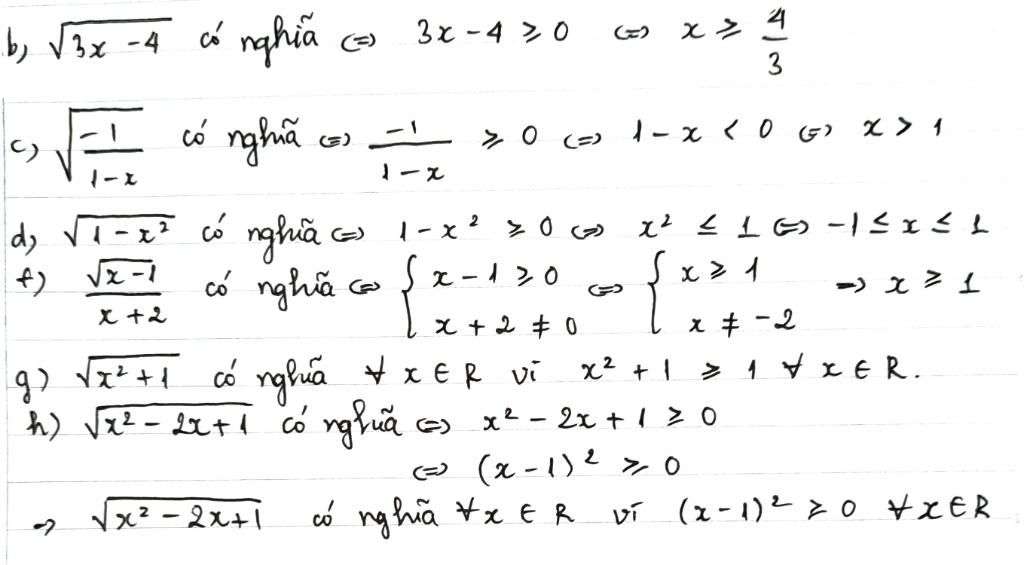 b) √(3x - 4) có nghĩa ⇔ 3x - 4 ≥ 0 ⇔ x ≥ 4/3
c) √(-1/(1-x)) có nghĩa ⇔ -1/(1-x) ≥ 0 ⇔ 1-x < 0 ⇔ x > 1
d) √(1-x²) có nghĩa ⇔ 1-x² ≥ 0 ⇔ x² ≤ 1 ⇔ -1 ≤ x ≤ 1
f) √(x-1)/(x+2) có nghĩa ⇔ { x-1 ≥ 0 ; x+2 ≠ 0 ⇔ { x ≥ 1 ; x ≠ -2 → x ≥ 1
g) √(x²+1) có nghĩa ∀ x ∈ R vì x² + 1 ≥ 1 ∀ x ∈ R.
h) √(x² - 2x+1) có nghĩa ⇔ x² - 2x + 1 ≥ 0
⇔ (x-1)² ≥ 0
→ √(x² - 2x+1) có nghĩa ∀x ∈ R vì (x-1)² ≥ 0 ∀x∈R